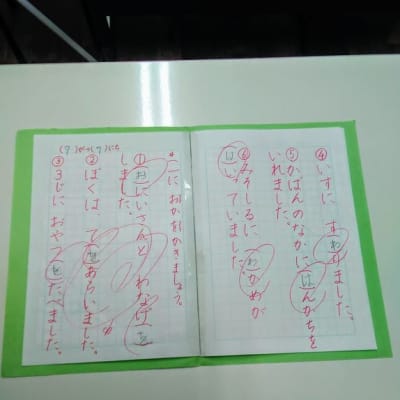 (7)がつ(9)にち
*□に おかをかきましょう。
① おにいさんと わなげを
しました。
② ぼくは、てをあらいました。
③ 3じに おやつをたべました。
④ いすに すわりました。
⑤ かばんのなかに はんかちを
いれました。
⑥ みそしるに わかめが
はいっていました。